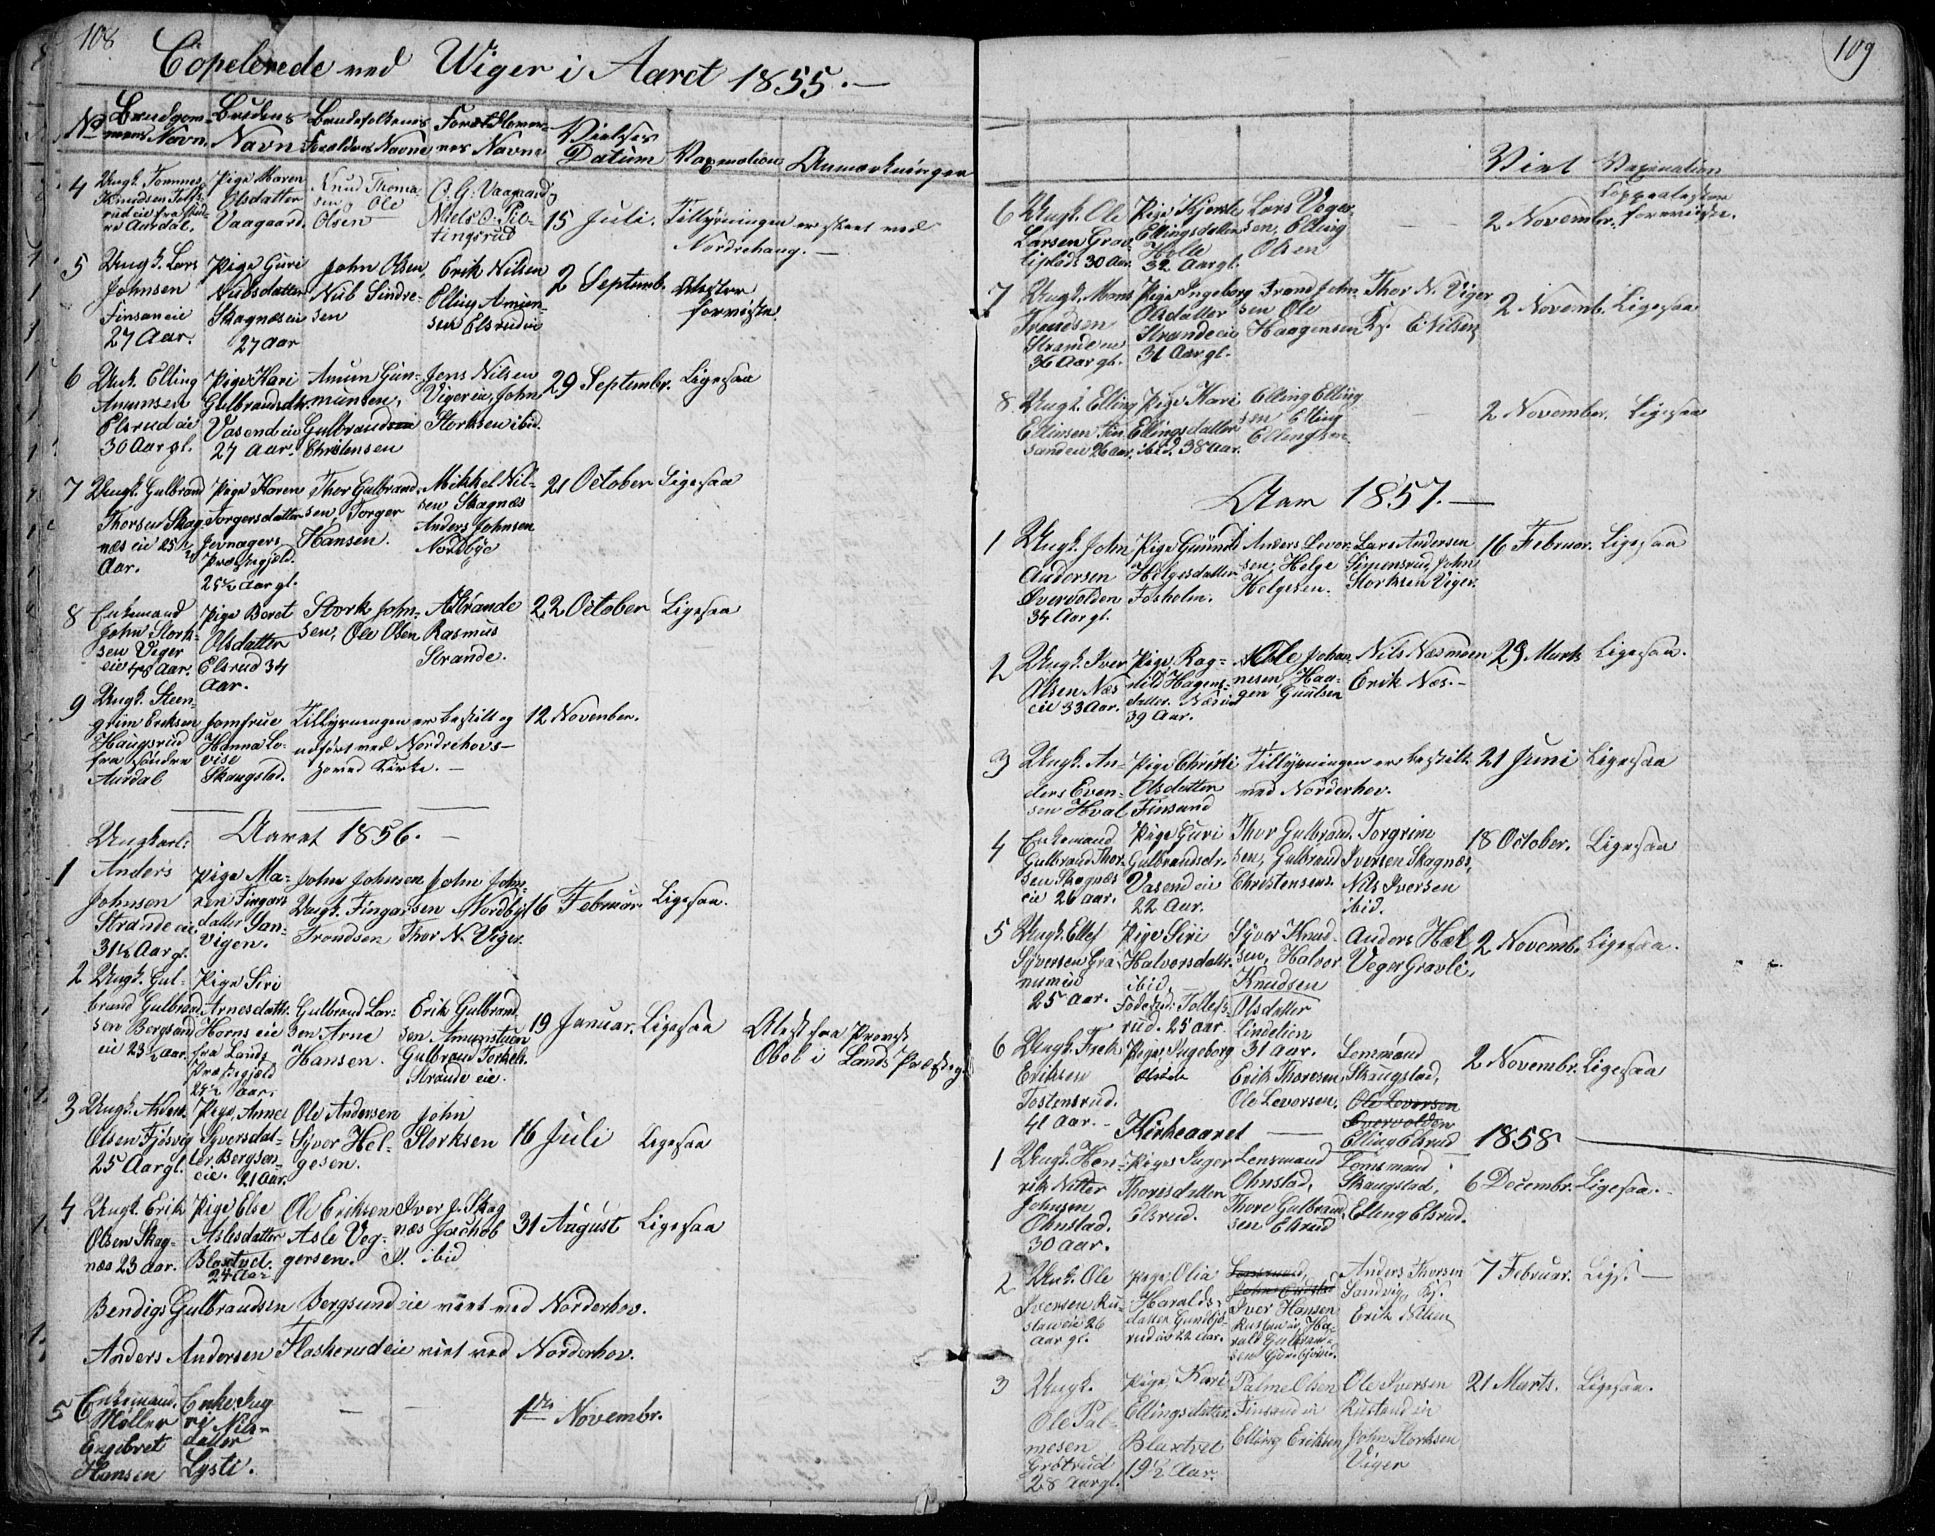 108
Copelerede ved Wiger i Aaret 1855.
No Brudgommens Navn. Brudens Navn Brudefolkenes Forældres Navne Forlovernes Navne Vielses Datum Vaxination Anmærkninger
4 Ungk. Tommes Knudsen
fra Aurdal.
Pige Karen Olsdatter Vaagaard.
Knud Thomasen, Ole Olsen
C. G. Vaagaard
15 Juli. Tillysningen er skeet ved
Nordrehaug.
5 Ungk. Lars Johnsen Finsan eie 27 Aar.
Pige Guri Nubsdatter Skagnæs eie 27 Aar
John Olsen, Nub Sindresen
Erik Nilsen Elling Amunsen Elsrud eie
2 Septemb. Attester forviste.
6 Unk. Elling Amunsen Elsrud eie 30 Aar gl.
Pige Kari Gulbrandsdtr. Vasend eie 27 Aar.
Amun Gunmunsen, Gulbrand Christensen
Jens Nilsen Viger eie, John Storksen ibid.
29 Septembr. Ligesaa
7 Ungk. Gulbrand Thorsen Skagnæs eie 25½ Aar.
Pige Karen Torgersdatter Jevnagers Præstegjæld. 25½ Aar gl.
Thor Gulbrandsen, Torger Hansen.
Mikkel Nilsen Skagnæs Anders Johnsen Nordbye
21 October Ligesaa
8 Enkemand John Storksen Viger eie 48 Aar.
Pige Beret Olsdatter Elsrud 34 Aar.
Stork Johnsen, Ole Olsen
A Strande Rasmus Strande.
22 October Ligesaa
9 Ungk. Steengrim Eriksen Haugsrud fra Søndre Aurdal
Jomfrue Hanna Lovise Skaugstad.
Tillysningen er bestilt og
udført ved Nordrehovs
hoved Kirke.
12 November.
Aaret 1856.
1 Ungkarl: Anders Johnsen Strande eie 31½ Aar gl.
Pige Maren Fingarsdatter Sanvigen.
John Johnsen Ungk. Fingar Trondsen
John Johnsen Nordbye Thor N. Viger.
16 Februar. Ligesaa.
2 Ungk. Gulbrand Gulbrandsen Bergsund eie 23½ Aar.
Pige Siri Arnesdattr. Horns eie fra Lands Præstegjæld Aar.
Gulbrand Larsen Arne Hansen.
Erik Gulbrandsen Gulbran Torkels. Strande eie.
19 Januar. Ligesaa
Attest fra Provst
i Lands Præstegj.
3 Ungk. Anders Olsen Fjøsvig 25 Aar gl.
Pige Anne Syversdatter Bergsun eie. 21 Aar.
Ole Andersen Syver Helgesen.
John Storksen
16 Juli Ligesaa
4 Ungk. Erik Olsen Skagnæs 23 Aar.
Pige Else Aslesdatter Blaxtvet. 24 Aar
Ole Eriksen Asle Veggersen.
Iver J. Skagnæs Jachob ibid
31 August Ligesaa
Bendigs Gulbrandsen Bergsund eie viet ved Norderhov.
Anders Andersen Flaskerud eie viet ved Norderhov.
5 Enkemand Møller Engebret Hansen
Enke Nilsdatter Lyste.
1ste Novembr.
109
Viet Vaxination
6 Ungk. Ole Larsen Gravliplads 30 Aar.
Pige Kjerste Ellingsdatter Holle 32 Aar gl.
Lars Vegersen, Elling Olsen
2 Novembr. forevist.
7 Ungk. Mons Trondsen Strande eie 36 Aar gl.
Pige Ingeborg Olsdatter Strande eie 31 Aar gl.
Trond Johnsen Ole Haagensen
Thor N. Viger Ks. E. Nilsen
2 Novemb. Ligesaa
8 Ungk. Elling Ellinsen Finsand eie 26 Aar.
Pige Kari Ellingsdatter ibid. 38 Aar.
Elling Ellingsen Elling Ellingsen
2 November. Ligesaa
Aar 1857.
1 Ungk. John Andersen Svervolden 34 Aar gl.
Pige Gunnild Helgesdatter Fosholm.
Anders Leversen, Helge Helgesen.
Lars Andersen Simensrud, John Storksen Viger.
16 Februar. Ligesaa
2 Ungk. Iver Olsen Næs eie 33 Aar.
Pige Ragnild Hagensdatter. Næs eie 39 Aar.
Ole Johannesen Hagen Gunulsen
Nils Næsmoen Erik Næs.
29 Marts Ligesaa.
3 Ungk. Anders Evensen Hval
Pige Christi Olsdatter Finsand
Tillysningen er bestilt
ved Norderhov.
21 Juni Ligesaa
4 Enkemand Gulbrand Thorsen Skagnæs eie 26 Aar.
Pige Guri Gulbrandsdr. Vasend eie 22 Aar.
Thor Gulbrandsen, Gulbrand Christensens.
Torgrim Iversen Skagnæs, Nils Iversen ibid.
18 October. Ligesaa
5 Ungk. Ellef Syversen 25 Aar.
Pige Siri Halvorsdattr. ibid, Fødested: Tollefsrud. 25 Aar
Syver Knudsen, Halvor Knudsen
Anders Hæl Veger Gravli.
2 Novembr. Ligesaa.
6 Ungk. Frek Eriksen Tostensrud. 41 Aar.
Pige, Ingeborg Olsdatter Lindelien 31 Aar.
Erik Thoresen, Ole Leversen.
Lensmand Skaugstad, Ole Leversen Svervolden Elling Elsrud
2 Novembr. Ligesaa
Kirkeaaret 1858
1 Ungk. Henrik Nitter Johnsen Ohnstad. 30 Aar.
Pige Inger Thoresdatter Elsrud.
Lensmand Ohnstad, Thore Gulbrandsen Elsrud
Lensmand Skaugstad, Elling Elsrud.
6 Decembr. Ligesaa.
2 Unk. Ole Iversen Rustan eie 26 Aar gl.
Pige, Olia Haraldsdatter Gunbjørud eie 22 Aar.
Lensmand, John Ohnstad Iver Hansen Rustan eie, Harald Gulbransen Gunbjørud.
Anders Thorsen Sandvig, Ks. Erik Nilsen
7 Februar. Ligs.
3 Ungk. Ole Palmesen Grøtrud 28 Aar gl.
Pige, Kari Ellingsdatter Blaxtvet 19½ Aar
Palme Olsen Finsand eie Elling Eriksen
Ole Iversen Rustand eie John Storksen Viger
21 Marts. Ligesaa.